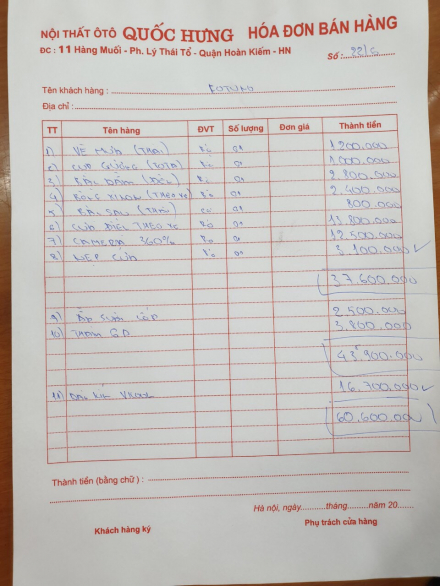 NỘI THẤT ÔTÔ QUỐC HƯNG HÓA ĐƠN BÁN HÀNG
ĐC : 11 Hàng Muối - Ph. Lý Thái Tổ - Quận Hoàn Kiếm - HN
Số :
Tên khách hàng :
Địa chỉ :
TT Tên hàng ĐVT Số lượng Đơn giá Thành tiền
1) VÈ MƯA (THÁI) Bộ 01 1.200.000
2) Bộ 01 1.000.000
3) Bộ 01 2.800.000
4) Bộ 01 2.400.000
5) 01 800.000
6) Bộ 01 13.800.000
7) CAMERA 360% Bộ 01 12.500.000
8) NẸP CỬA Bộ 01 3.100.000
37.600.000
9) 2.500.000
10) THẢM 6D 3.800.000
43.900.000
11) 16.700.000
60.600.000
Thành tiền (bằng chữ) :
Hà nội, ngày.........tháng.........năm 20......
Khách hàng ký Phụ trách cửa hàng